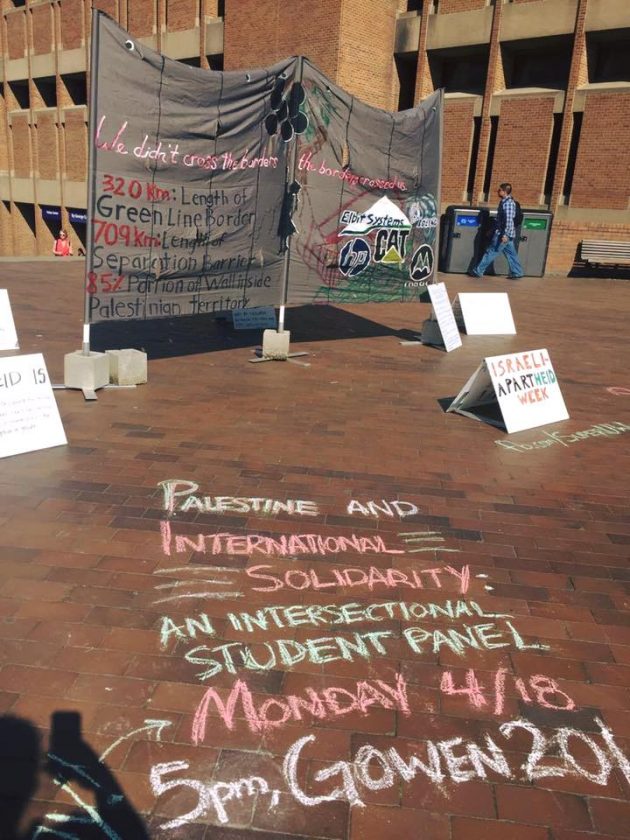 We didn't cross the borders
the borders crossed us
320 Km: Length of
Green Line Border
709 Km: Length of
Separation Barrier
85% Portion of Wall inside
Palestinian territory
Elbit Systems
CAT
hp
EID IS
ISRAELI
APARTHEID
WEEK
PALESTINE AND
INTERNATIONAL
SOLIDARITY:
AN INTERSECTIONAL
STUDENT PANEL
MONDAY 4/18
5pm, GOWEN 201